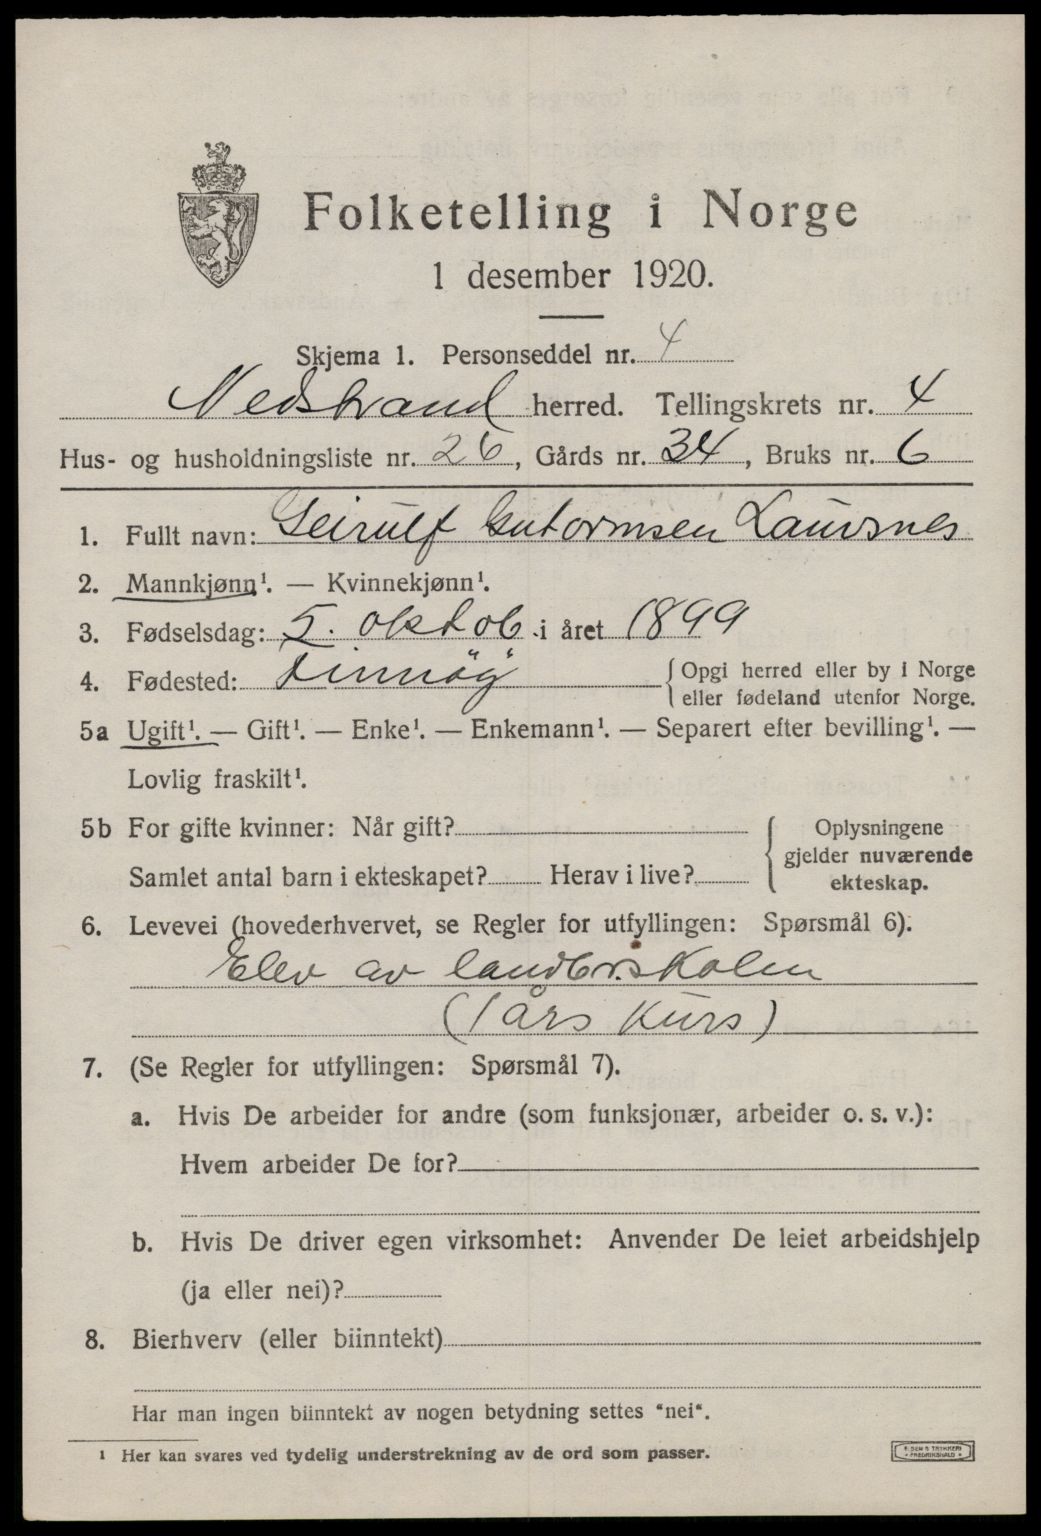 Folketelling i Norge
1 desember 1920.
Skjema 1. Personseddel nr. 4
Nedstrand herred. Tellingskrets nr. 4
Hus- og husholdningsliste nr. 26, Gårds nr. 34, Bruks nr. 6
1. Fullt navn: Geirulf Gutormsen Lauvsnes
2. Mannkjønn¹. — Kvinnekjønn¹.
3. Fødselsdag: 5. oktob i året 1899
4. Fødested: Finnöy { Opgi herred eller by i Norge
eller fødeland utenfor Norge.
5a Ugift¹. — Gift¹. — Enke¹. — Enkemann¹. — Separert efter bevilling¹. —
Lovlig fraskilt¹.
5b For gifte kvinner: Når gift?
Samlet antal barn i ekteskapet? Herav i live?
{ Oplysningene
gjelder nuværende
ekteskap.
6. Levevei (hovederhvervet, se Regler for utfyllingen: Spørsmål 6).
Elev av landbr.skolen
(1 års kurs)
7. (Se Regler for utfyllingen: Spørsmål 7).
a. Hvis De arbeider for andre (som funksjonær, arbeider o. s. v.):
Hvem arbeider De for?
b. Hvis De driver egen virksomhet: Anvender De leiet arbeidshjelp
(ja eller nei)?
8. Bierhverv (eller biinntekt)
Har man ingen biinntekt av nogen betydning settes "nei".
¹ Her kan svares ved tydelig understrekning av de ord som passer.